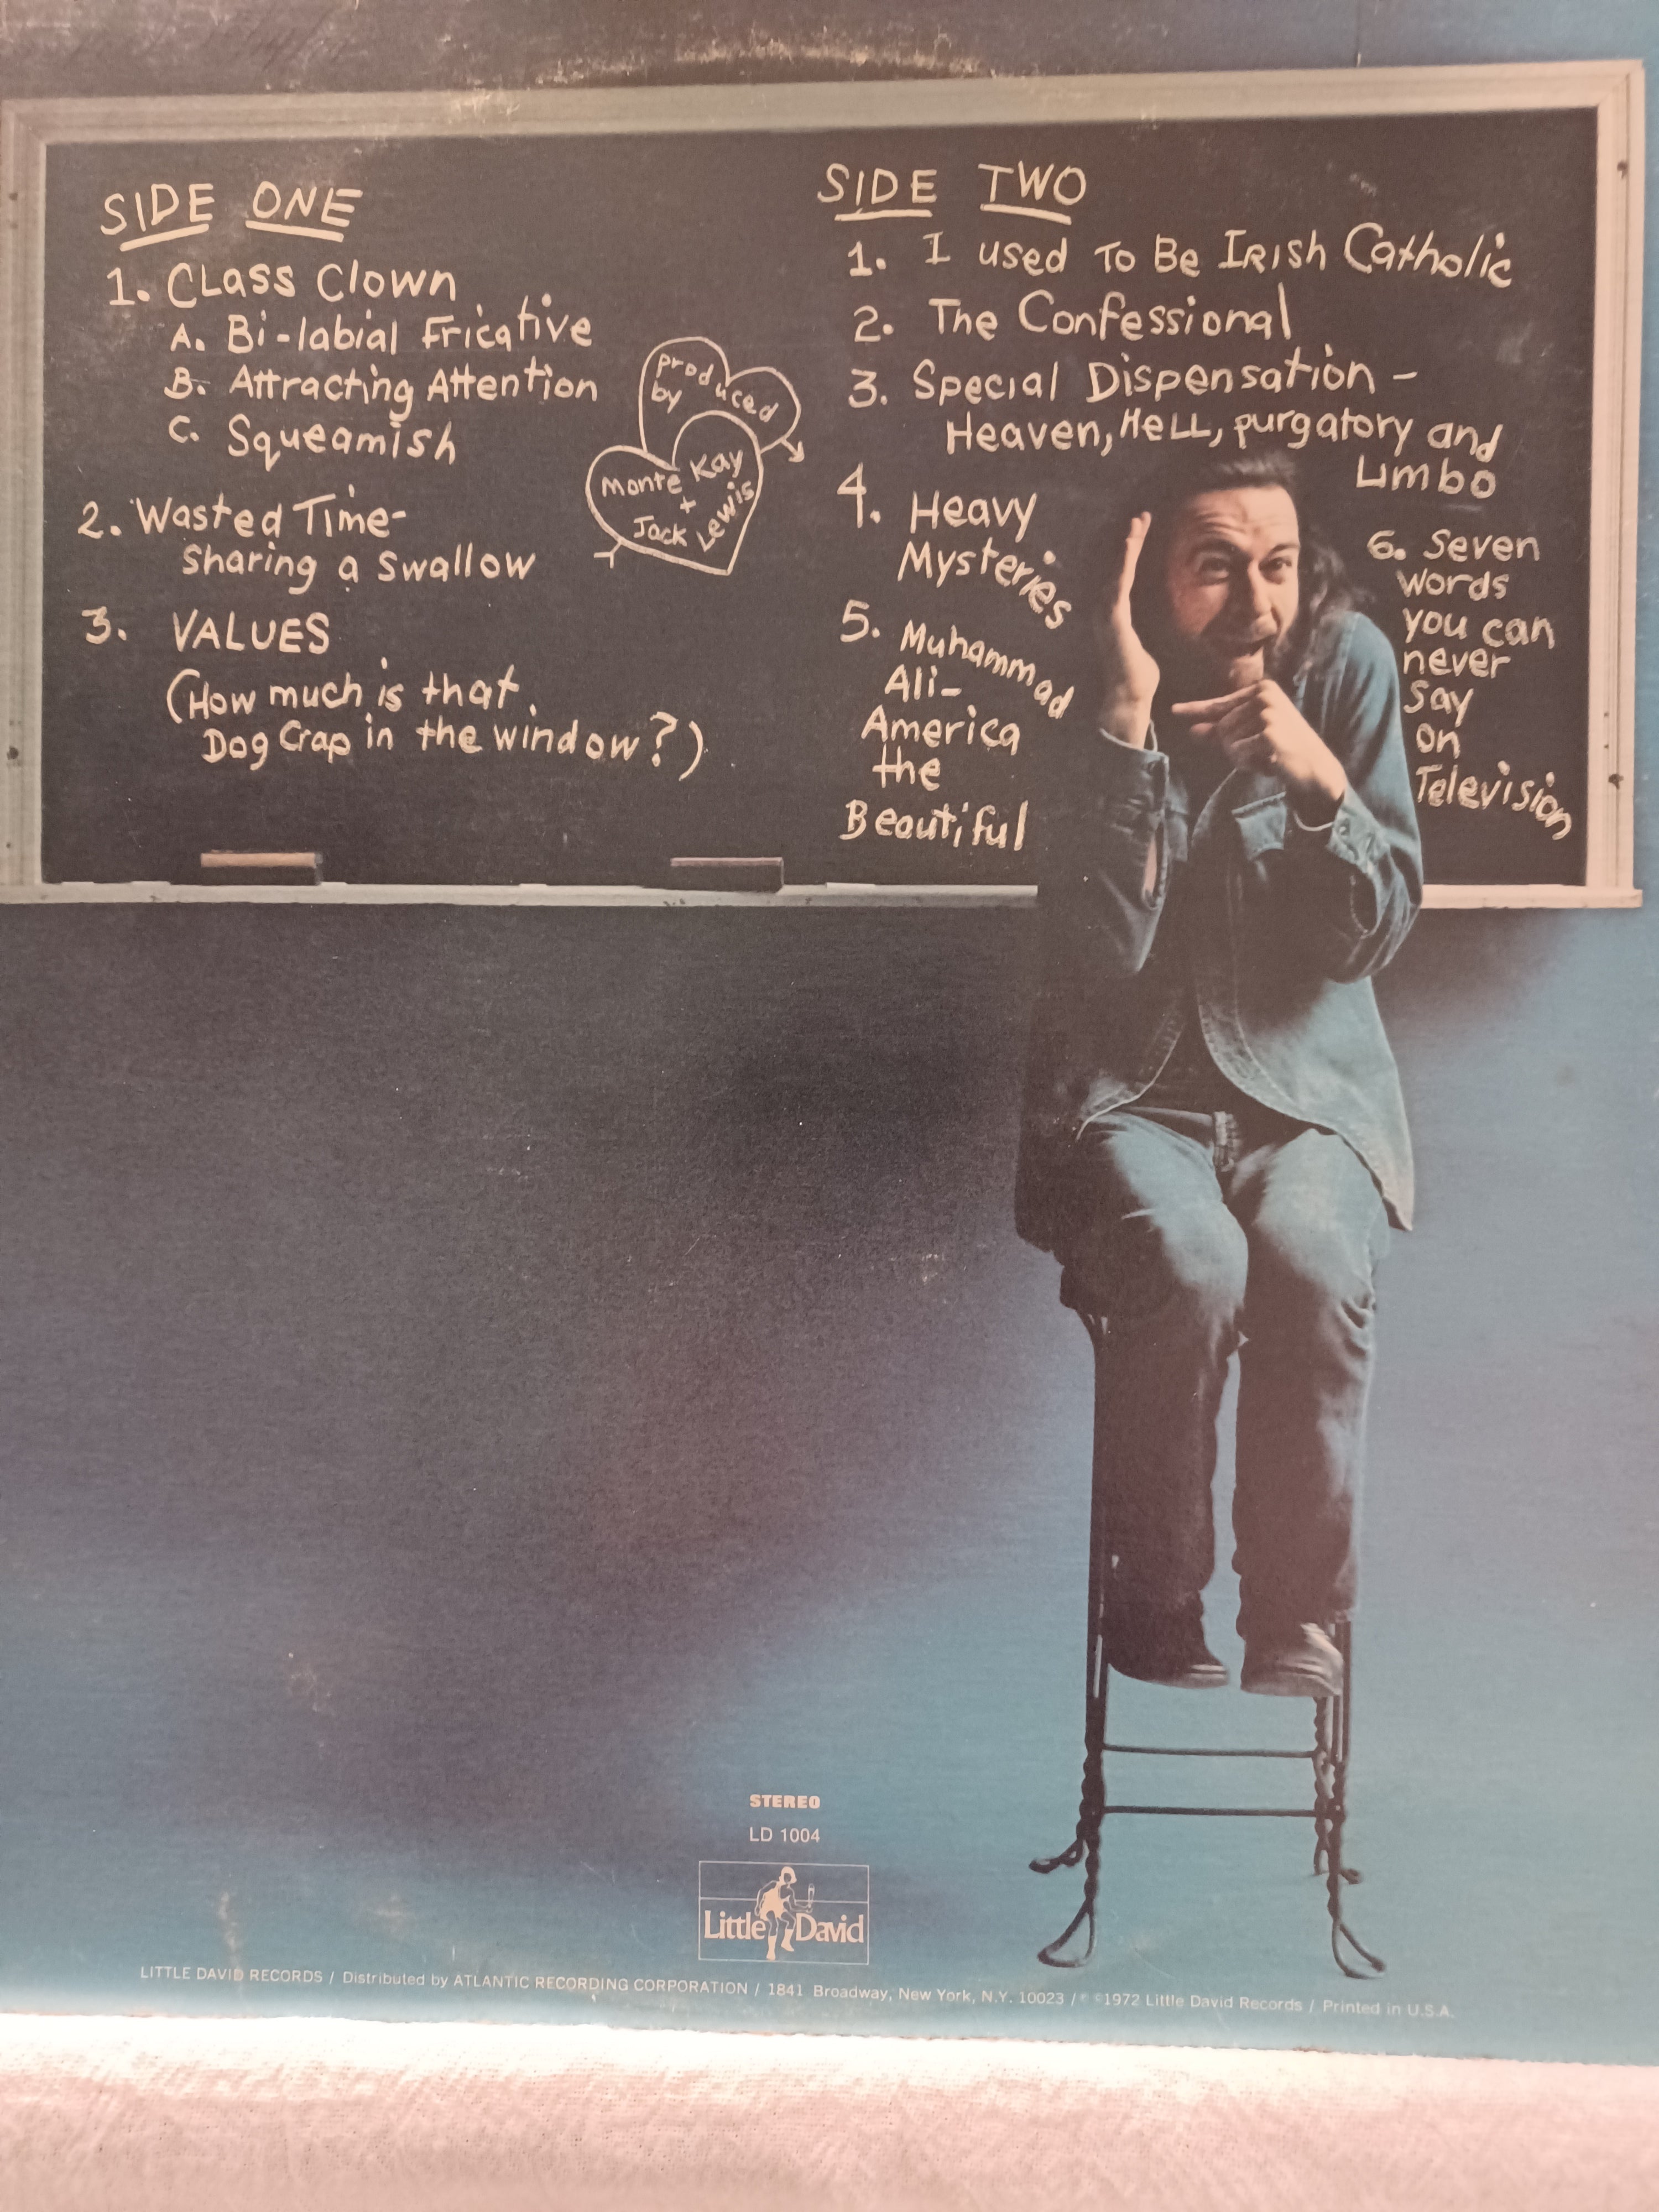 SIDE ONE
1. Class Clown
A. Bi-labial Fricative
B. Attracting Attention
C. Squeamish
2. Wasted Time-
Sharing a Swallow
3. VALUES
(How much is that
Dog Crap in the window?)
produced
by
Monte Kay
+
Jack Lewis
SIDE TWO
1. I used To Be Irish Catholic
2. The Confessional
3. Special Dispensation -
Heaven, Hell, purgatory and
Limbo
4. Heavy
Mysteries
5. Muhammad
Ali-
America
the
Beautiful
6. Seven
words
you can
never
say
on
Television
STEREO
LD 1004
Little David
LITTLE DAVID RECORDS / Distributed by ATLANTIC RECORDING CORPORATION / 1841 Broadway, New York, N.Y. 10023 / ℗ ©1972 Little David Records / Printed in U.S.A.